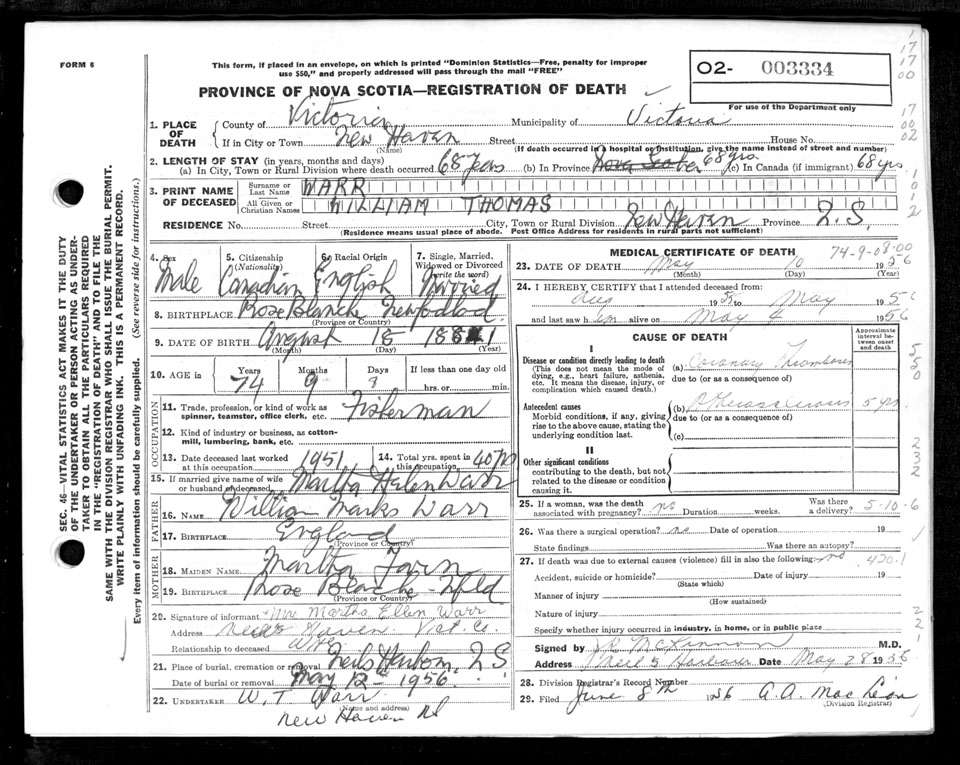 FORM 6
This form, if placed in an envelope, on which is printed "Dominion Statistics—Free, penalty for improper
use $50," and properly addressed will pass through the mail "FREE"
O2- 003334
PROVINCE OF NOVA SCOTIA—REGISTRATION OF DEATH
For use of the Department only
17
17
00
17
00
02
1. PLACE OF DEATH
County of Victoria Municipality of Victoria
If in City or Town New Haven Street House No.
(Name) (If death occurred in a hospital or institution, give the name instead of street and number)
2. LENGTH OF STAY (in years, months and days)
(a) In City, Town or Rural Division where death occurred 68 years (b) In Province Nova Scotia 68 yrs (c) In Canada (if immigrant) 68 yrs
3. PRINT NAME OF DECEASED
Surname or Last Name WARR
All Given or Christian Names WILLIAM THOMAS
RESIDENCE No. Street City, Town or Rural Division New Haven Province N.S.
(Residence means usual place of abode. Post Office Address for residents in rural parts not sufficient)
SEC. 46—VITAL STATISTICS ACT MAKES IT THE DUTY
OF THE UNDERTAKER OR PERSON ACTING AS UNDER-
TAKER TO OBTAIN ALL THE PARTICULARS REQUIRED
IN THE "REGISTRATION OF DEATH" AND TO FILE THE
SAME WITH THE DIVISION REGISTRAR WHO SHALL ISSUE THE BURIAL PERMIT.
WRITE PLAINLY WITH UNFADING INK. THIS IS A PERMANENT RECORD.
Every item of information should be carefully supplied. (See reverse side for instructions.)
4. Sex Male
5. Citizenship (Nationality) Canadian
6. Racial Origin English
7. Single, Married, Widowed or Divorced (write the word) Married
8. BIRTHPLACE Rose Blanche Newfodlad
(Province or Country)
9. DATE OF BIRTH August 18 1881
(Month) (Day) (Year)
10. AGE in Years Months Days If less than one day old
74 9 hrs. or min.
OCCUPATION
11. Trade, profession, or kind of work as spinner, teamster, office clerk, etc. Fisherman
12. Kind of industry or business, as cotton-mill, lumbering, bank, etc.
13. Date deceased last worked at this occupation 1951
14. Total yrs. spent in this occupation 40 yrs
15. If married give name of wife or husband of deceased Martha Helen Warr
FATHER
16. NAME William Marks Warr
17. BIRTHPLACE England
(Province or Country)
MOTHER
18. MAIDEN NAME Martha
19. BIRTHPLACE Rose Blanche Nfld
(Province or Country)
20. Signature of informant Mrs Martha Ellen Warr
Address New Haven Vict. Co.
Relationship to deceased wife
21. Place of burial, cremation or removal Neils Harbour, N S
Date of burial or removal May 12 1956
22. UNDERTAKER W. T. Warr
(Name and address)
New Haven
MEDICAL CERTIFICATE OF DEATH
74-9-08-00
23. DATE OF DEATH May 10 1956
(Month) (Day) (Year)
24. I HEREBY CERTIFY that I attended deceased from:
Aug 1955 to May 1956
and last saw him alive on May 4 1956
CAUSE OF DEATH
Approximate interval between onset and death
I
Disease or condition directly leading to death
(This does not mean the mode of dying, e.g., heart failure, asthenia, etc. It means the disease, injury, or complication which caused death.)
(a) Coronary Thrombosis
due to (or as a consequence of)
Antecedent causes
Morbid conditions, if any, giving rise to the above cause, stating the underlying condition last.
(b) 5 yrs
due to (or as a consequence of)
(c)
II
Other significant conditions
contributing to the death, but not related to the disease or condition causing it.
25. If a woman, was the death associated with pregnancy? no Duration weeks. Was there a delivery? 5-10-6
26. Was there a surgical operation? no Date of operation 19
State findings Was there an autopsy?
27. If death was due to external causes (violence) fill in also the following: no 420.1
Accident, suicide or homicide? Date of injury 19
(State which)
Manner of injury
(How sustained)
Nature of injury
Specify whether injury occurred in industry, in home, or in public place
Signed by McKinnon M.D.
Address Neil's Harbour Date May 28 1956
28. Division Registrar's Record Number
29. Filed June 8th 1956 A.A. MacLean
(Division Registrar)